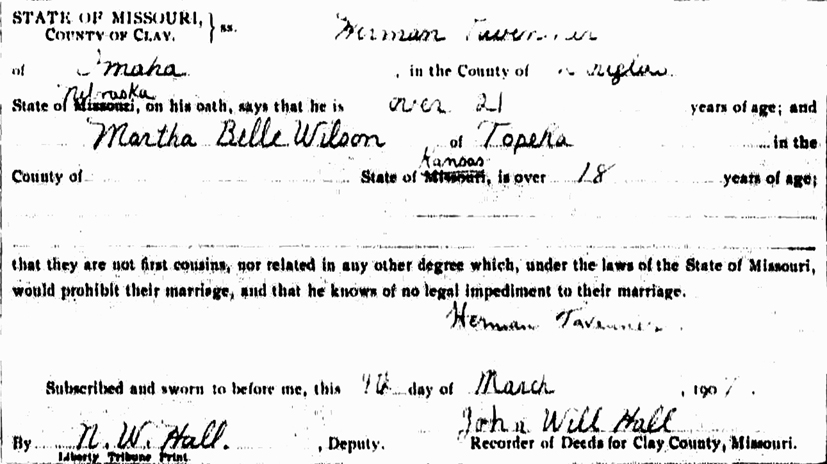 STATE OF MISSOURI, } ss. Herman Tavenner
COUNTY OF CLAY.
of Omaha, in the County of Douglas
Nebraska
State of Missouri, on his oath, says that he is over 21 years of age; and
Martha Belle Wilson of Topeka in the
Kansas
County of State of Missouri, is over 18 years of age;
that they are not first cousins, nor related in any other degree which, under the laws of the State of Missouri,
would prohibit their marriage, and that he knows of no legal impediment to their marriage.
Herman Tavenner
Subscribed and sworn to before me, this day of March, 190
John Will Hall
By N. W. Hall., Deputy. Recorder of Deeds for Clay County, Missouri.
Liberty Tribune Print.